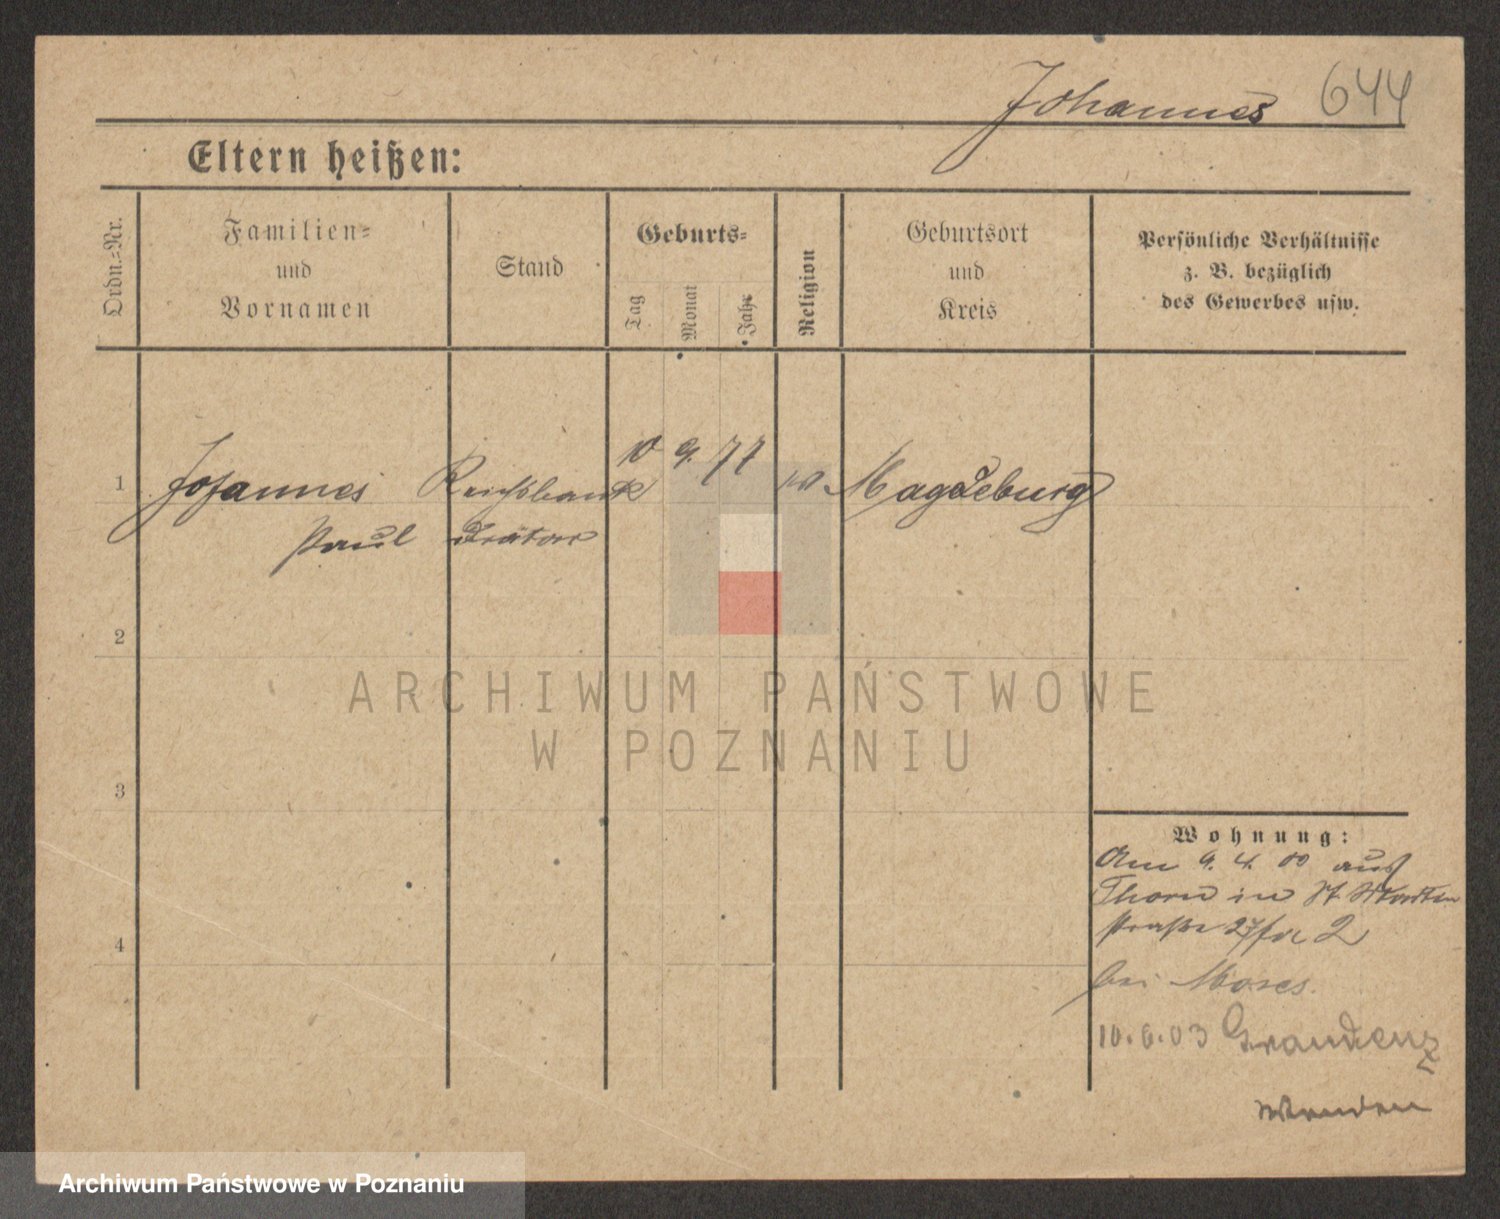 Johannes 644
Eltern heißen:
Ordn.-Nr.
Familien-
und
Vornamen
Stand
Geburts-
Tag
Monat
Jahr
Religion
Geburtsort
und
Kreis
Persönliche Verhältnisse
z. B. bezüglich
des Gewerbes usw.
1 Johannes Reichsbank 10 9. 77 Magdeburg
Paul
2
3
4
Wohnung:
Am 9. 4. 00 aus
Thorn in St Martin
straße 27 2
bei Moses.
10.6.03 Graudenz
Wenden
ARCHIWUM PAŃSTWOWE
W POZNANIU
Archiwum Państwowe w Poznaniu